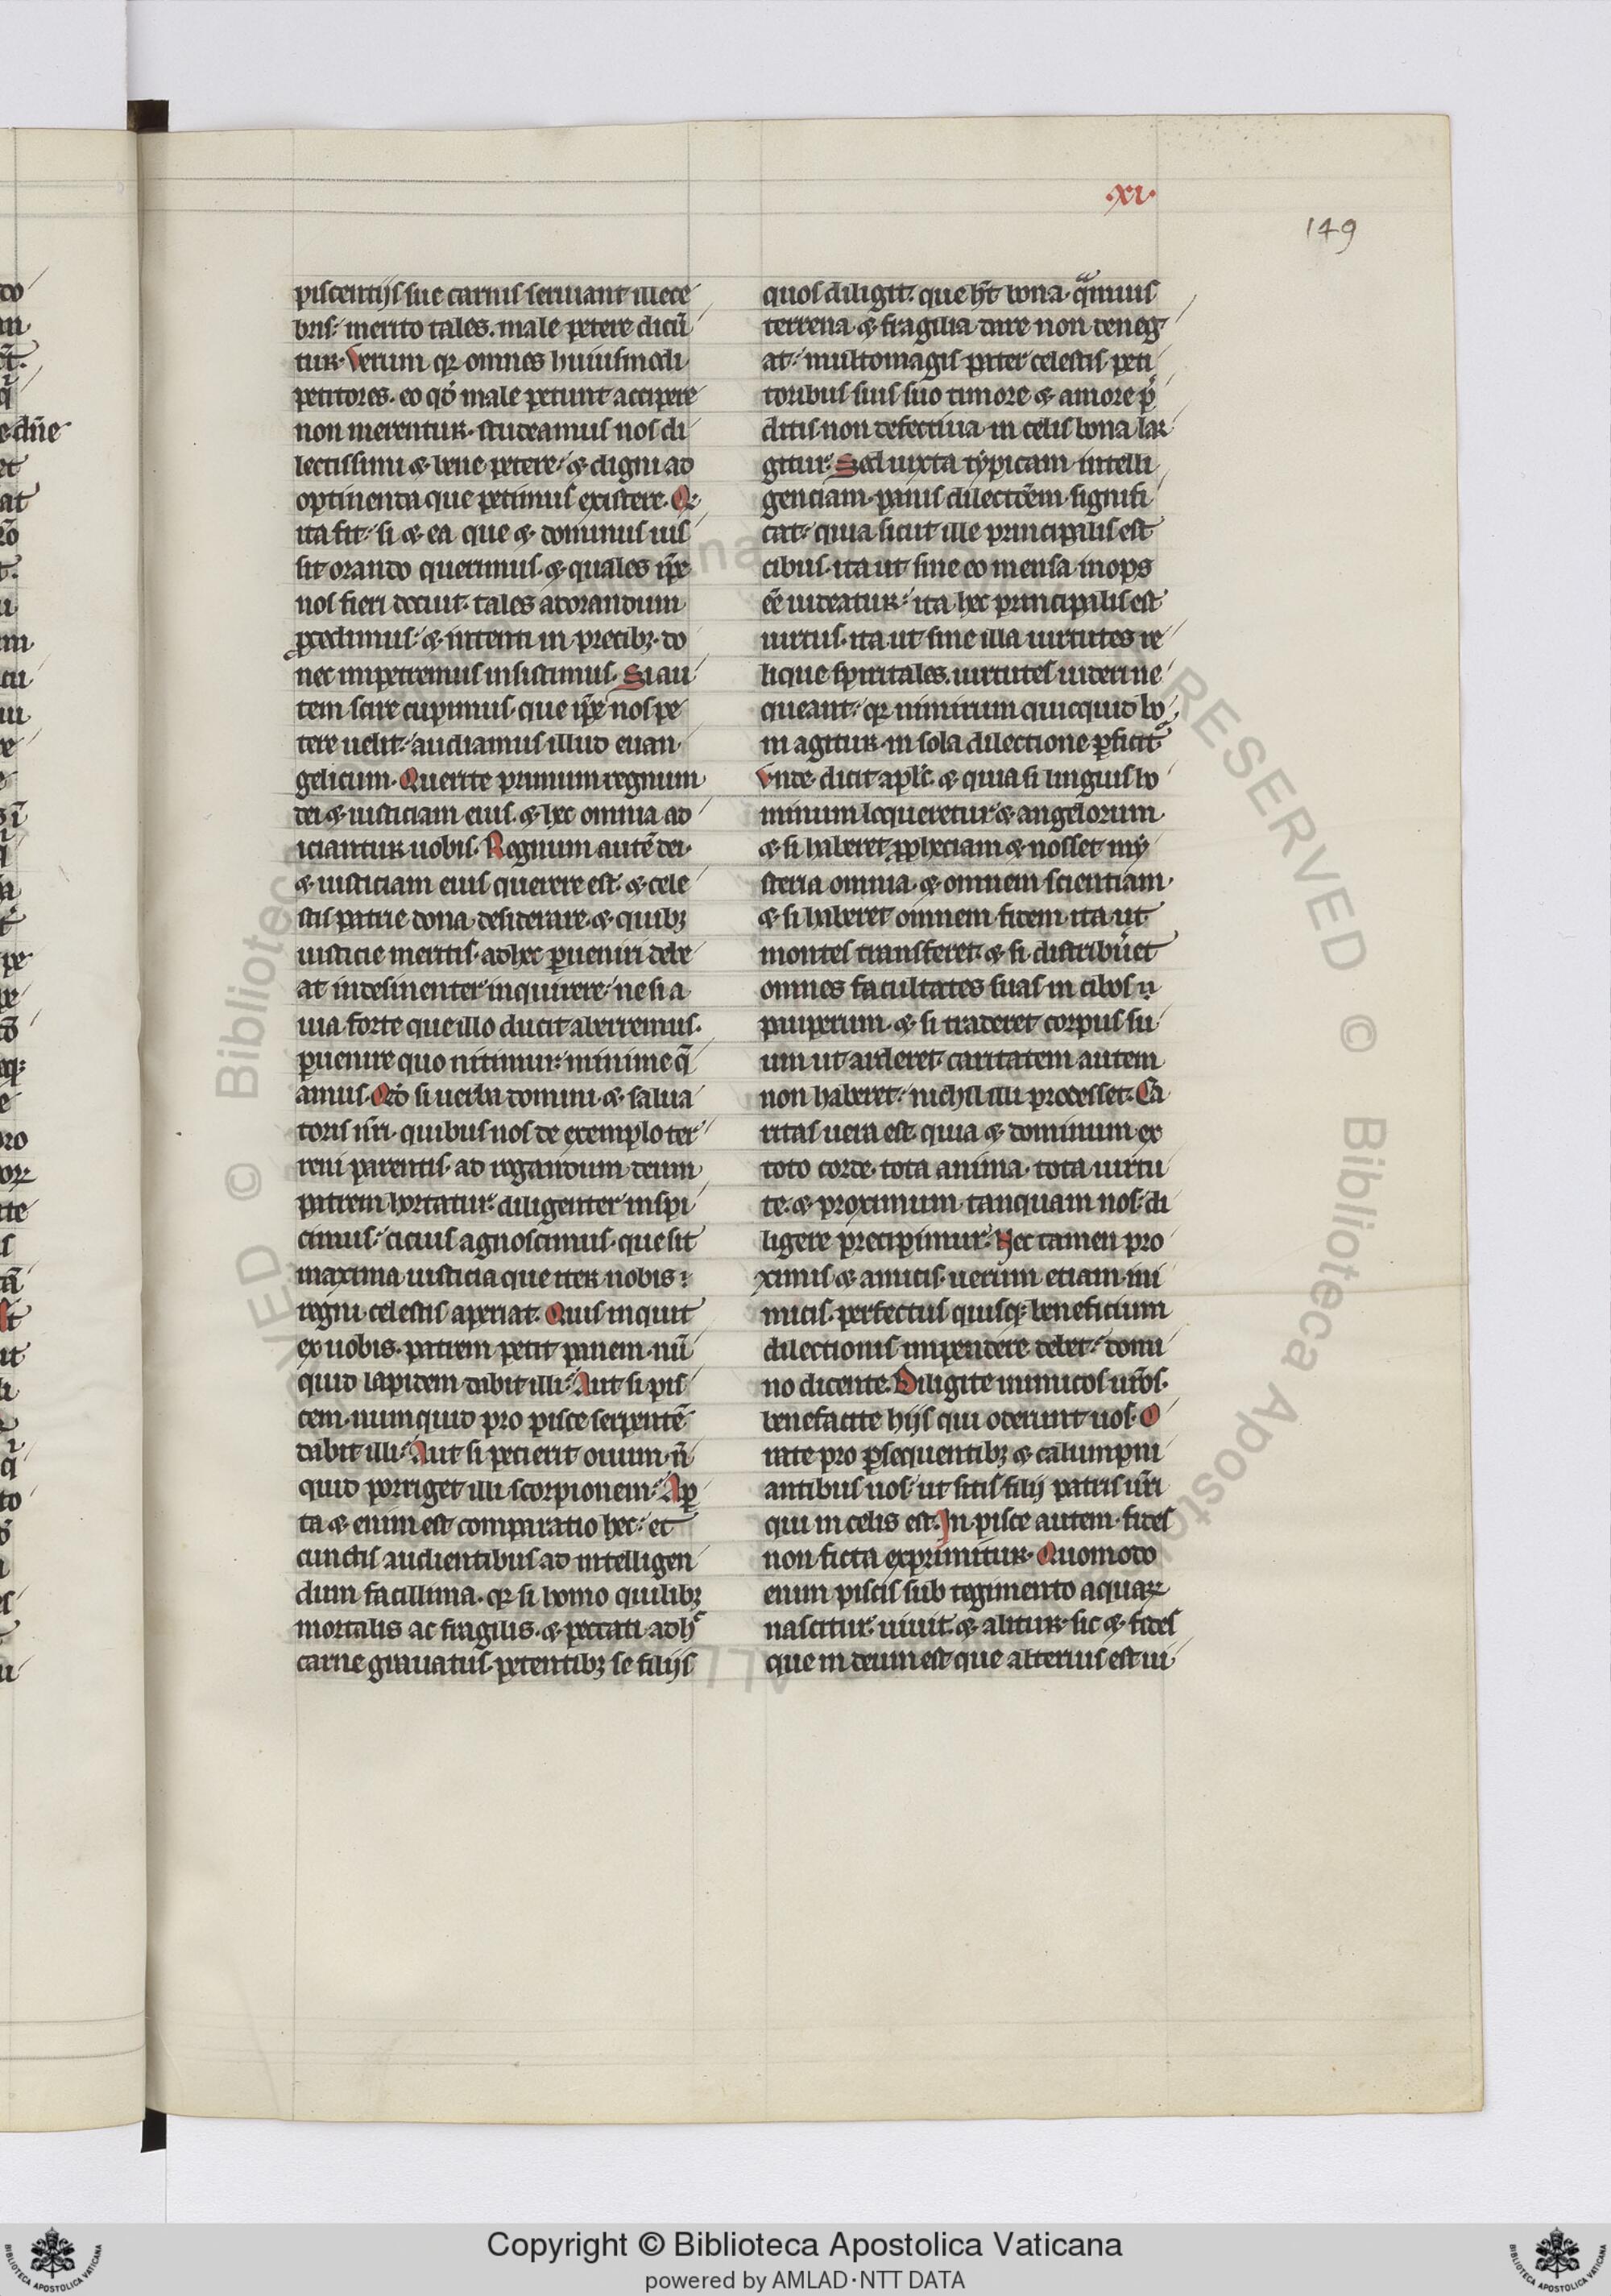 .xi.
149
piscentijs sue carnis seruiant illece
bris. merito tales. male petere dicū
tur. Verum qr omnes huiusmodi
petitores. eo qd male petunt accipere
non merentur. studeamus nos di
lectissimi & bene petere. & digni ad
optinenda que petimus existere. Q
ita fit. si & ea que & dominus iuf
sit orando querimus. & quales ip̄e
nos fieri docuit. tales adorandum
ꝓcedimus. & intenti in precibꝫ. do
nec impetremus insistimus. Si au
tem scire cupimus. que ip̄e nos pe
tere uelit. audiamus illud euan
gelicum. Querite primum regnum
dei & iusticiam eius. & hec omnia ad
iciantur uobis. Regnum autē dei.
& iusticiam eius querere est. & cele
stis patrie dona desiderare. & quibꝫ
iusticie meritis. ad hec ꝑueniri debe
at indesinenter inquirere. ne si a
uia forte que illo ducit aberremus.
ꝑuenire quo nitimur. minime q̄
amus. Qd si uerba domini & salua
toris n̄ri. quibus nos de exemplo ter
reni parentis. ad rogandum deum
patrem hortatur. diligenter inspi
cimus. cicius agnoscimus. que sit
maxima iusticia que iter nobis
regni celestis aperiat. Quis inquit
ex uobis. patrem petit panem. nū
quid lapidem dabit illi. Aut si pis
cem. numquid pro pisce serpentē
dabit illi. Aut si pecierit ouum. n̄
quid porriget illi scorpionem. Aꝑ
ta & enim est comparatio hec. et
cunctis audientibus ad intelligen
dum facillima. qr si homo quilibꝫ
mortalis ac fragilis. & peccati adhc
carne grauatus. petentibꝫ se filijs
quos diligit. que h̄t bona. quis
terrena & fragilia dare non deneg
at. multomagis pater celestis. peti
toribus suis suo timore & amore p̄
ditis non defectiua in celis bona lar
gitur. Sed iuxta tẏpicam intelli
genciam. panis dilectōem signifi
cat. quia sicut ille principalis est
cibus. ita ut sine eo mensa inops
eē uideatur. ita hec principalis est
uirtus. ita ut sine illa uirtutes re
lique spiritales. uirtutes uideri ne
queant. qr nimirum quicquid bo
ni agitur. in sola dilectione ꝑficit
Vnde dicit aplc. & quia si linguis ho
minum loqueretur & angelorum
& si haberet ꝓpheciam & nosset mẏ
steria omnia. & omnem scientiam
& si haberet omnem fidem. ita ut
montes transferet. & si distribuet
omnes facultates suas in cibos
pauperum. & si traderet corpus su
um ut arderet caritatem autem
non haberet. nichil illi prodesset. Ca
ritas uera est. quia & dominum ex
toto corde. tota anima. tota uirtu
te. & proximum tanquam nos. di
ligere precipimur. Nec tamen pro
ximis & amicis. uerum etiam ini
micis. perfectus quisqꝫ beneficium
dilectionis impendere debet. domi
no dicente. Diligite inimicos ur̄os.
benefacite hijs qui oderunt uos. O
rate pro ꝑsequentibꝫ & calumpni
antibus uos. ut sitis filij patris ur̄i
qui in celis est. In pisce autem. fides
non ficta exprimitur. Quomodo
enim piscis sub tegimento aquaꝝ
nascitur. uiuit. & alitur. sic & fides
que in deum est que alterius est ui
Copyright © Biblioteca Apostolica Vaticana
powered by AMLAD·NTT DATA